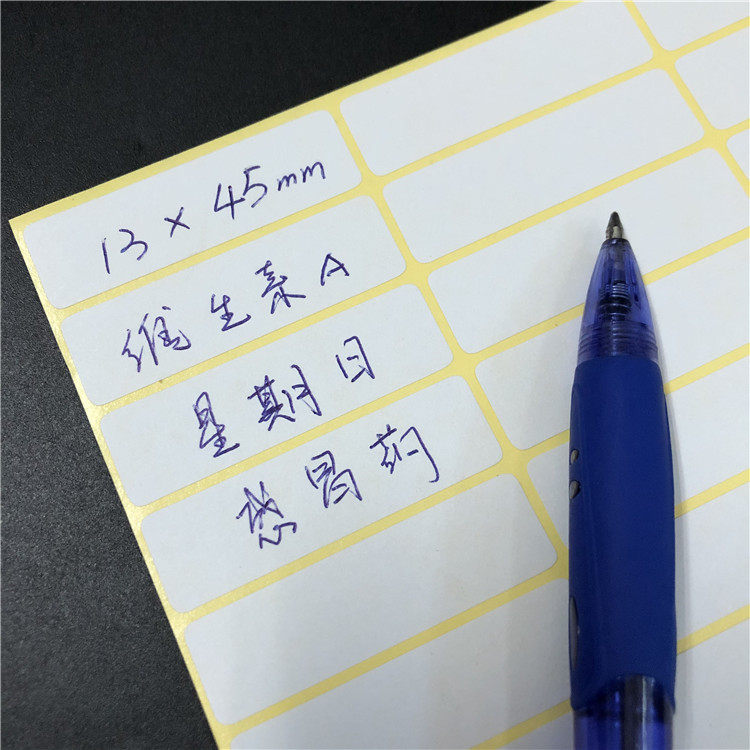 13 × 45mm
维生素A
星期日
感冒药